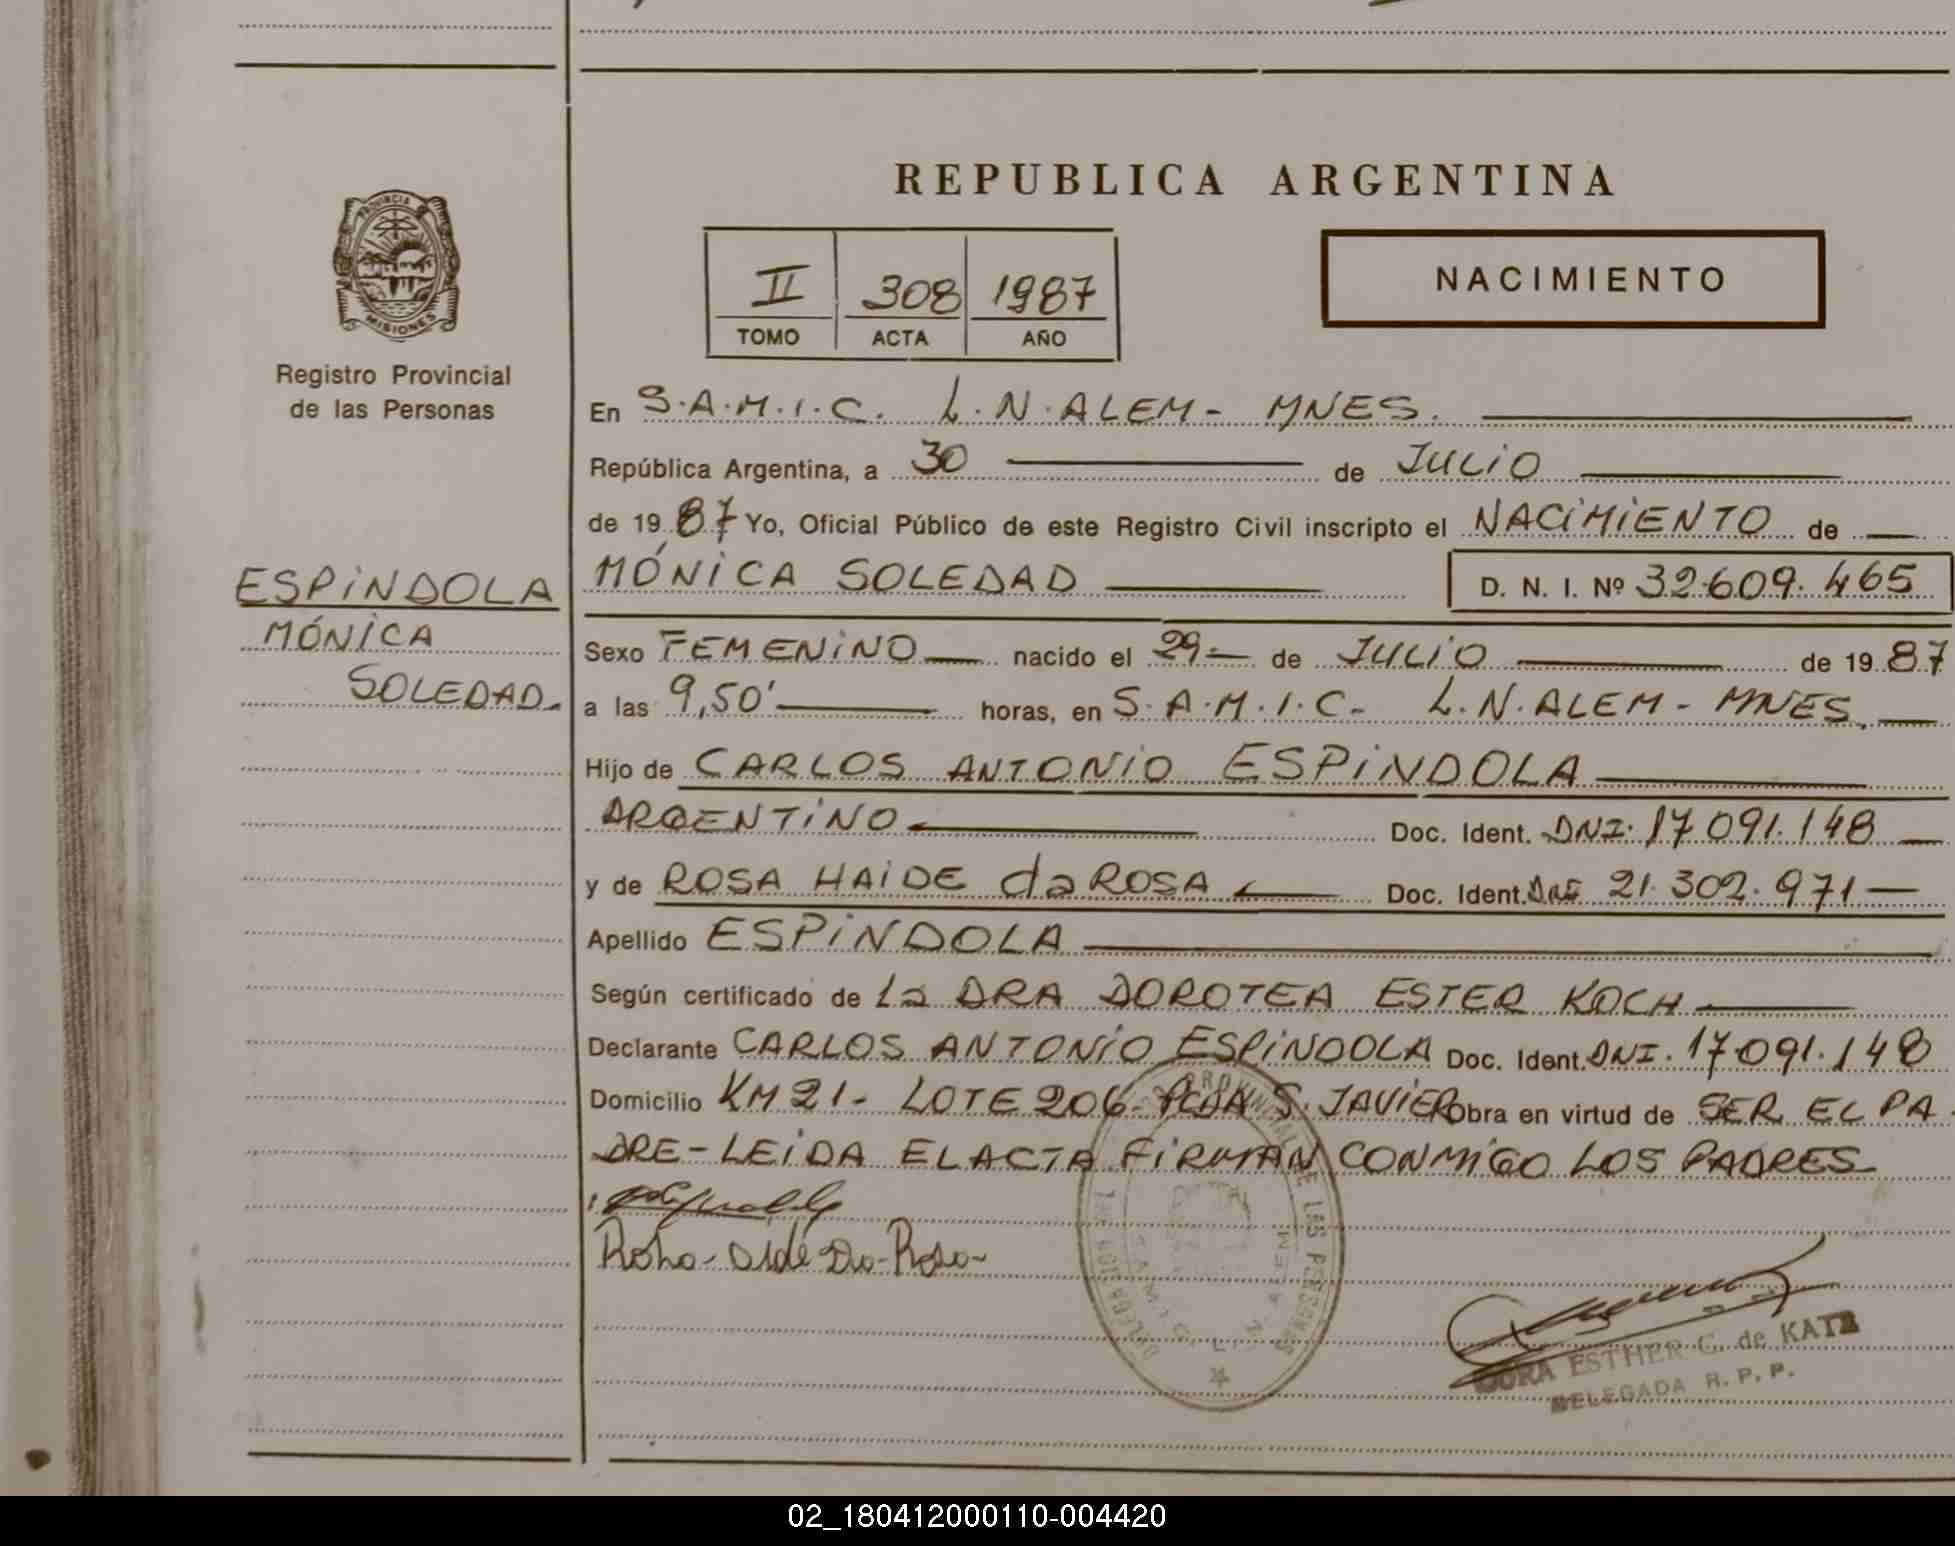 REPUBLICA ARGENTINA
PROVINCIA
MISIONES
Registro Provincial
de las Personas
II 308 1987
TOMO ACTA AÑO
NACIMIENTO
En S.A.M.I.C. L.N.ALEM- MNES.
República Argentina, a 30 de JULIO
de 1987 Yo, Oficial Público de este Registro Civil inscripto el NACIMIENTO de
ESPINDOLA
MÓNICA
SOLEDAD.
MÓNICA SOLEDAD D. N. I. Nº 32.609.465
Sexo FEMENINO nacido el 29- de JULIO de 1987
a las 9,50' horas, en S.A.M.I.C- L.N.ALEM- MNES.
Hijo de CARLOS ANTONIO ESPINDOLA
ARGENTINO Doc. Ident. DNI. 17.091.148
y de ROSA HAIDE da ROSA Doc. Ident. 21.302.971
Apellido ESPINDOLA
Según certificado de La DRA DOROTEA ESTER KOCH
Declarante CARLOS ANTONIO ESPINDOLA Doc. Ident. DNI. 17.091.148
Domicilio KM 21- LOTE 206- PCDA S. JAVIER Obra en virtud de SER EL PA
DRE-LEIDA EL ACTA FIRMAN CONMIGO LOS PADRES
DE LAS PERSONAS
DELEGACION
L. N. ALEM
ESTHER C. de KATZ
DELEGADA R. P. P.
02_180412000110-004420